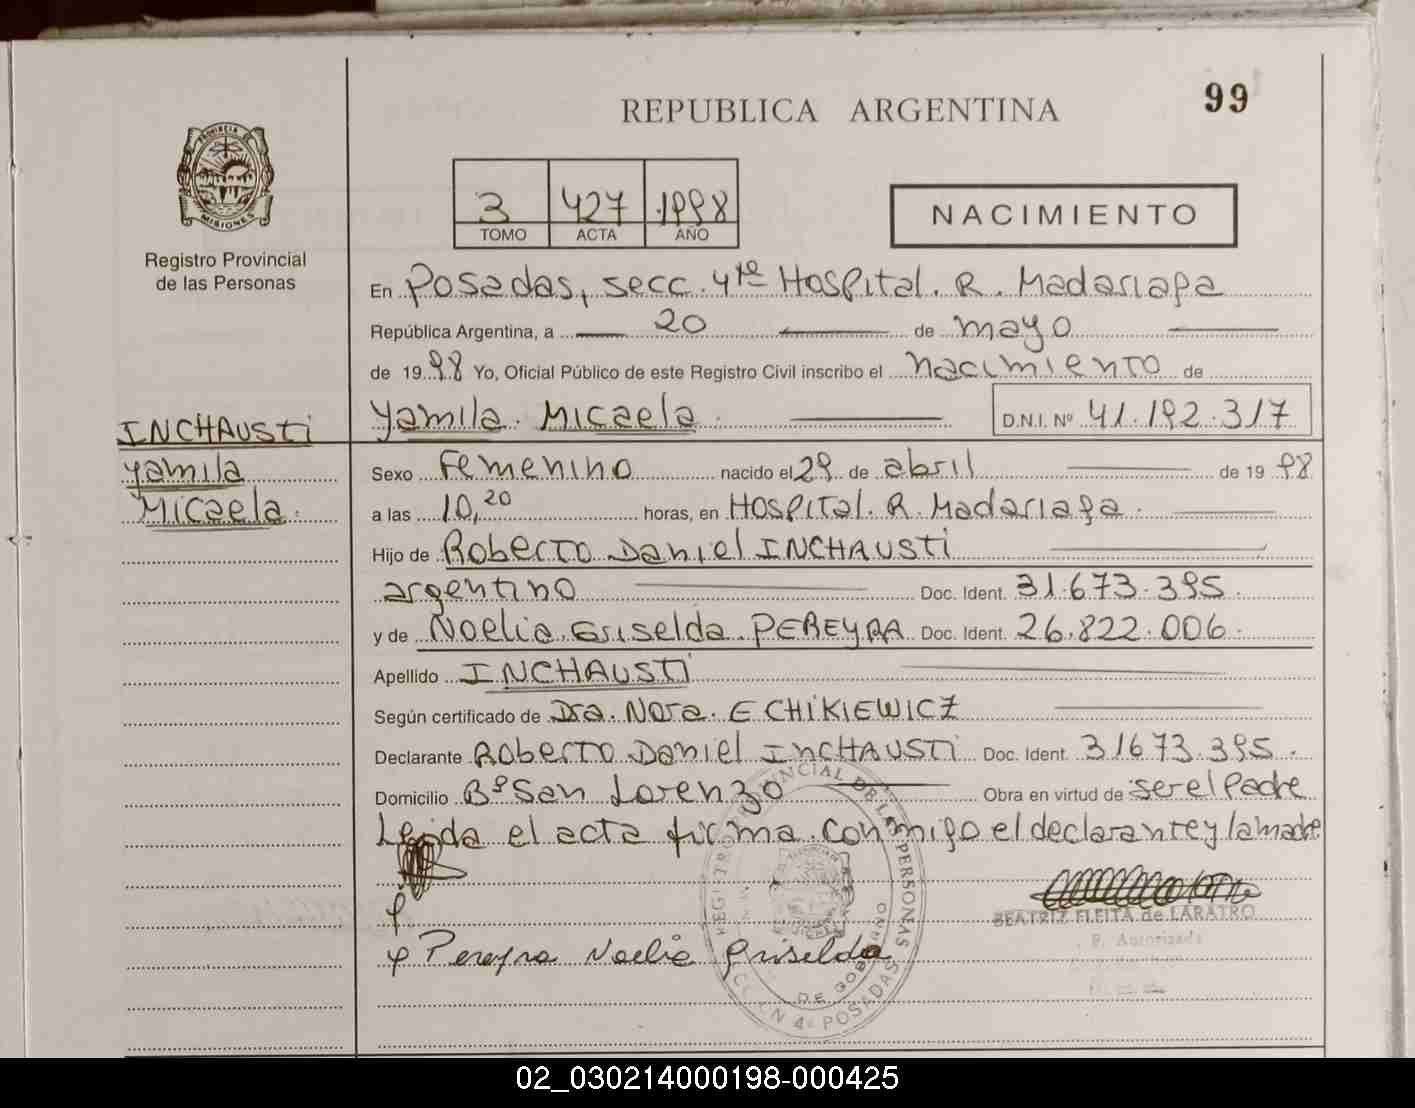 99
REPUBLICA ARGENTINA
PROVINCIA DE
MISIONES
Registro Provincial
de las Personas
3 427 1998
TOMO ACTA AÑO
NACIMIENTO
En Posadas, secc. 4ta Hospital. R. Madariaga
República Argentina, a 20 de mayo
de 19 98 Yo, Oficial Público de este Registro Civil inscribo el nacimiento de
Yamila. Micaela. D.N.I. Nº 41.192.317
INCHAUSTI
Yamila
Micaela.
Sexo Femenino nacido el 29 de abril de 19 98
a las 10,20 horas, en Hospital. R. Madariaga.
Hijo de Roberto Daniel INCHAUSTI
argentino Doc. Ident. 31.673.395.
y de Noelia. Griselda. PEREYRA Doc. Ident. 26.822.006.
Apellido INCHAUSTI
Según certificado de Dra. Nora. ECHIKIEWICZ
Declarante Roberto Daniel INCHAUSTI Doc. Ident. 31673.395.
Domicilio Bº San Lorenzo Obra en virtud de ser el Padre
Leida el acta firma conmigo el declarante y la madre
BEATRIZ FLEITA de LARATRO
Autorizada
Pereyra Noelia Griselda
REGISTRO PROVINCIAL DE LAS PERSONAS
DE GOBIERNO
SECCION 4ª POSADAS
02_030214000198-000425